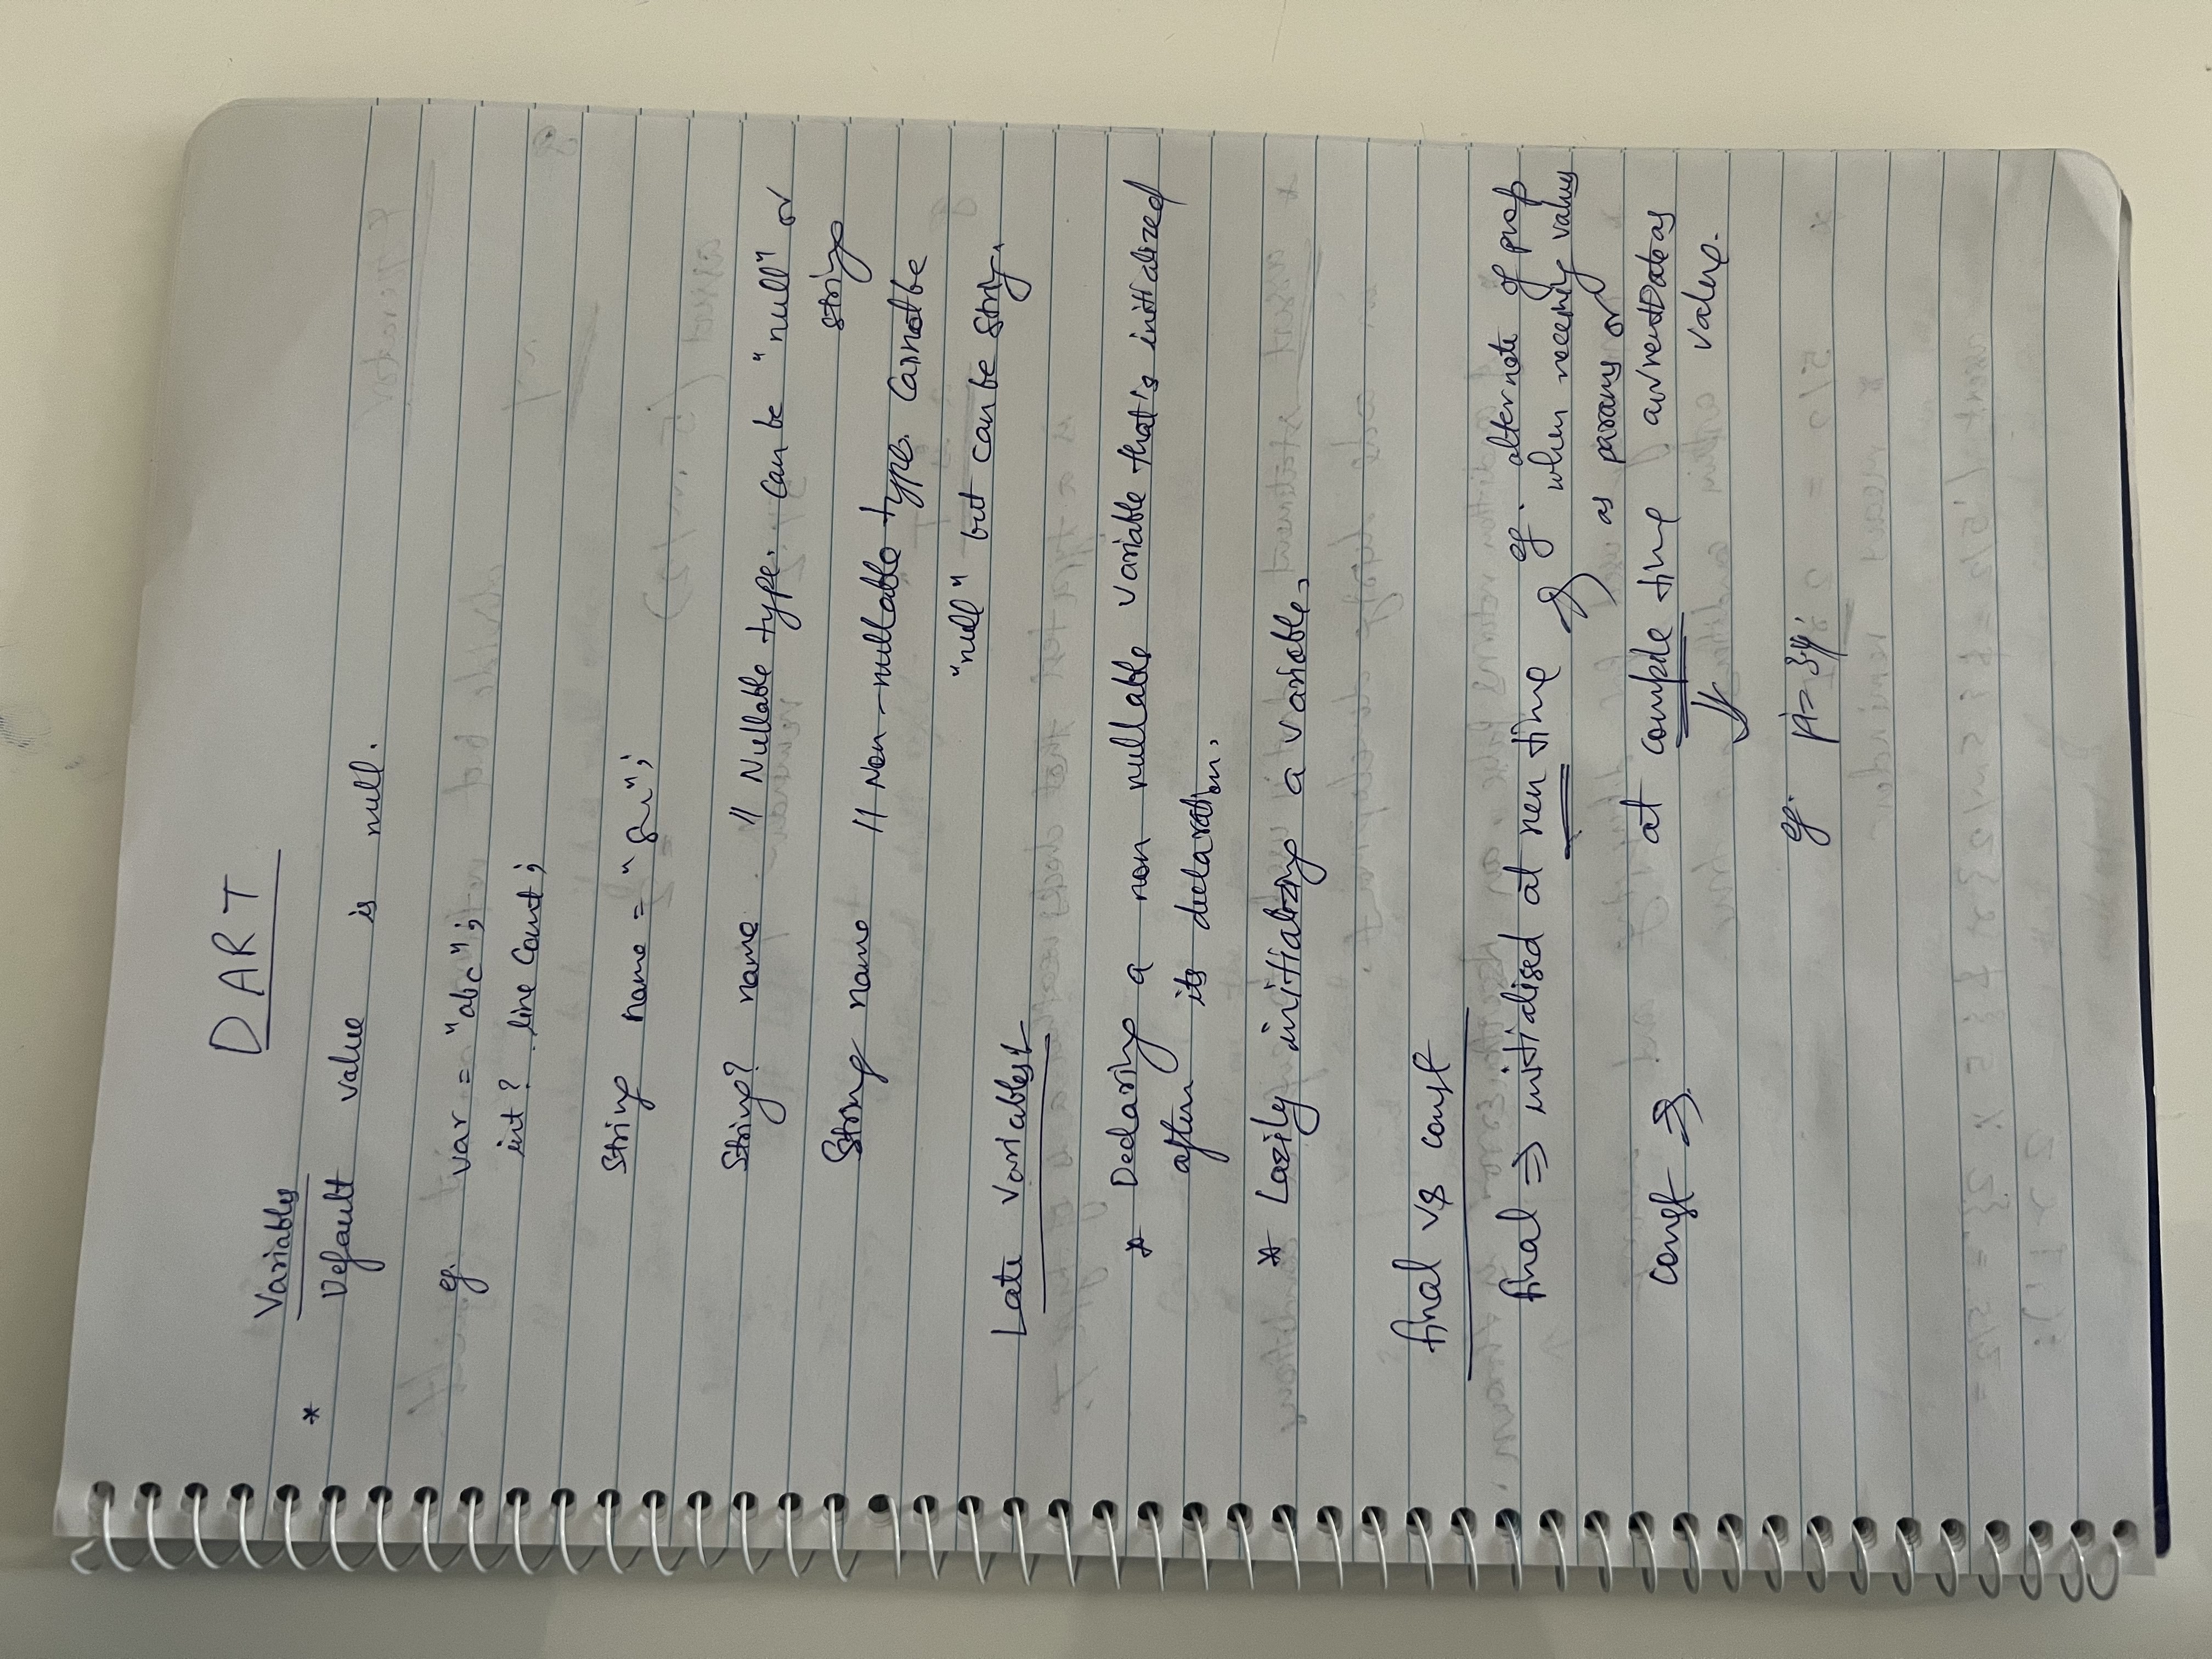 DART
Variables
* Default value is null.
eg. var = "abc";
int? line Count;
String name = "";
String? name // Nullable type. can be "null" or
string
String name // Non-nullable type. Cannot be
"null" but can be String.
Late Variables
* Declaring a non nullable variable that's initialized
after its declaration.
* Lazily initializing a variable.
final vs const
final => initialised at run time => eg. alternate of prop
when receiving values
as params or
currentDate as
value.
const => at compile time
eg. pi = 3.14;